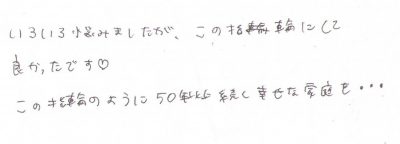 いろいろ悩みましたが、この指輪にして
良かったです♡
この指輪のように50年以上続く幸せな家庭を・・・